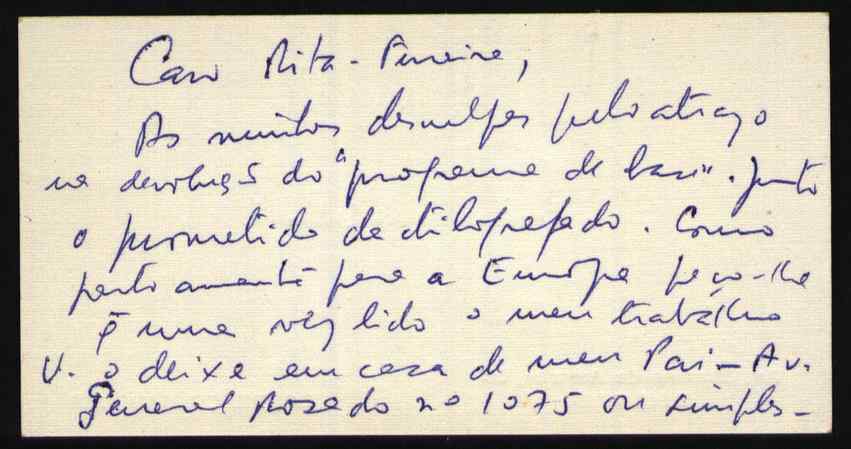 Caro Rita-Ferreira,
As muitas desculpas pelo atrazo
na devolução do "programa de base". Junto
o prometido dactilografado. Como
parto amanhã para a Europa peço-lhe
q uma vez lido o meu trabalho
V. o deixe em casa de meu Pai - Av.
General Rosado nº 1075 ou simples-